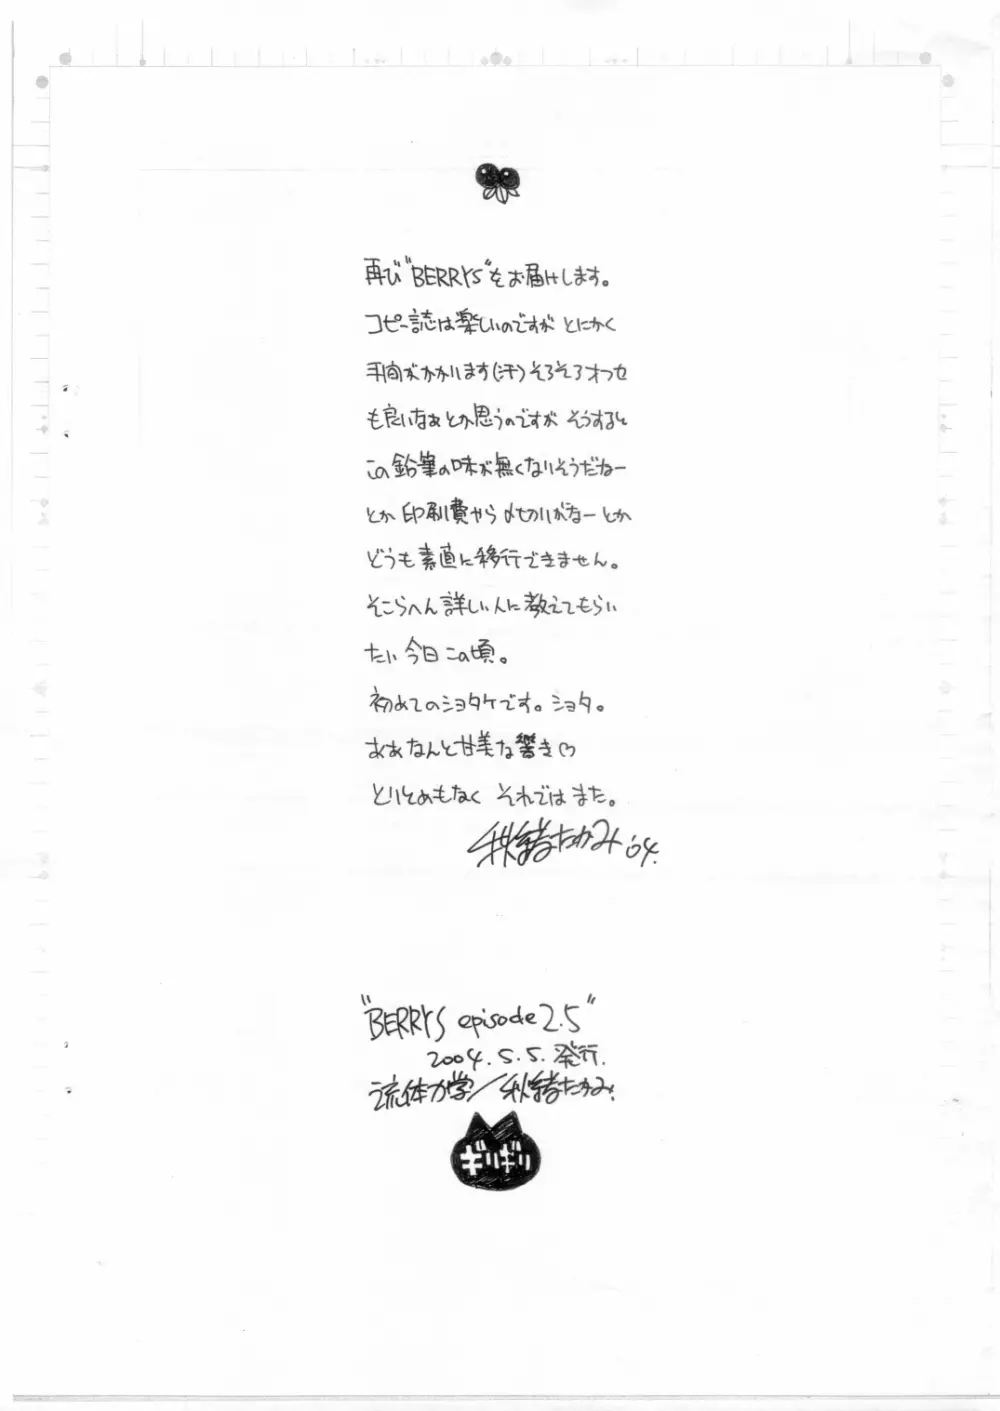 再び"BERRYS"をお届けします。
コピー誌は楽しいのですが とにかく
手間がかかります(汗)そろそろオフセ
も良いなぁとか思うのですが そうすると
この鉛筆の味が無くなりそうだなー
とか 印刷費やら〆切りがなー とか
どうも素直に移行できません。
そこらへん詳しい人に教えてもらい
たい今日この頃。
初めてのショタケです。ショタ。
ああなんと甘美な響き♡
とりとめもなく それではまた。
秋緒たかみ '04.
"BERRYS episode2.5"
2004.5.5.発行.
流体力学/秋緒たかみ.
ギリギリ